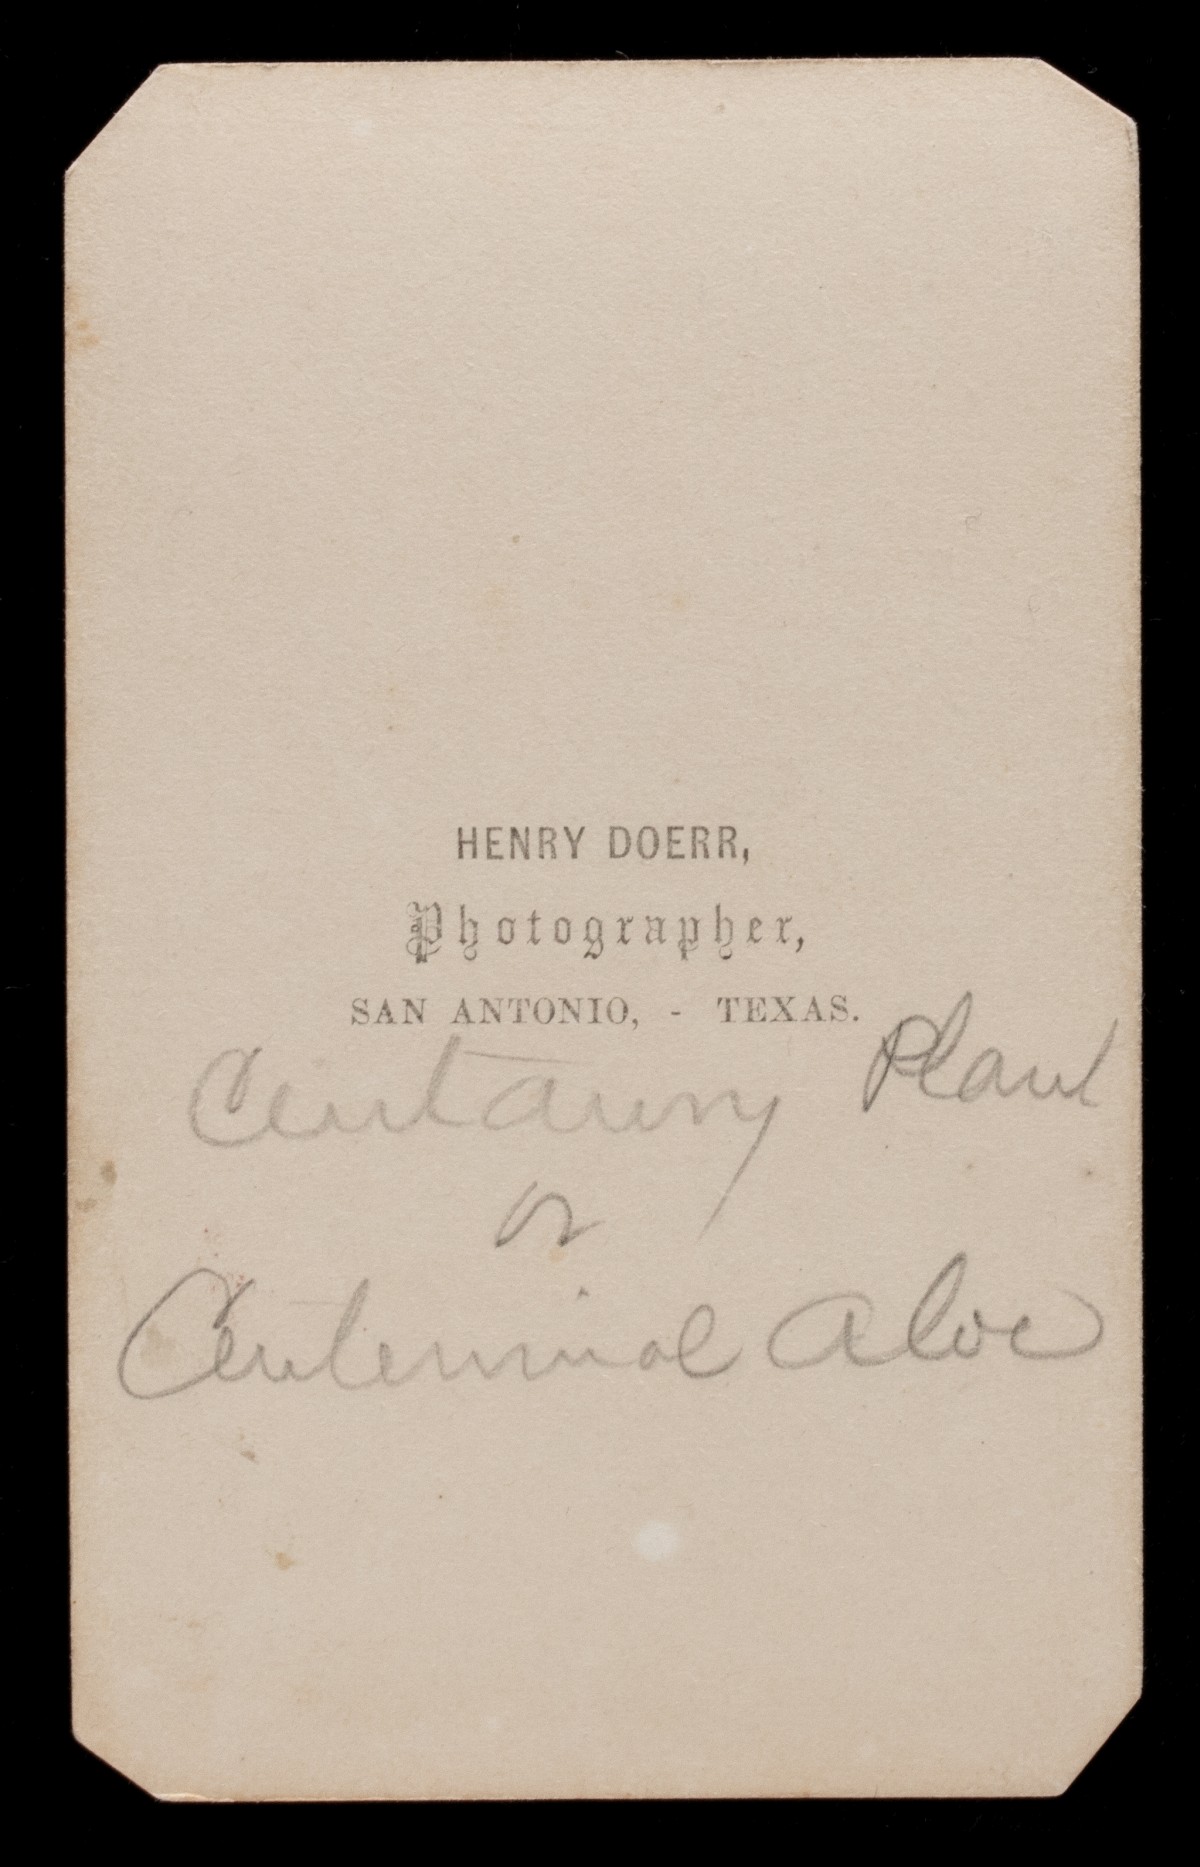 HENRY DOERR,
Photographer,
SAN ANTONIO, - TEXAS.
Centaury Plant
or
Centennial Aloe